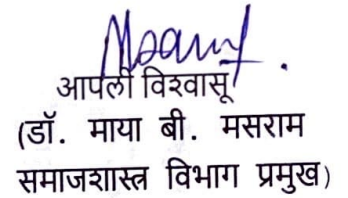 आपली विश्वासू
(डॉ. माया बी. मसराम
समाजशास्त्र विभाग प्रमुख)